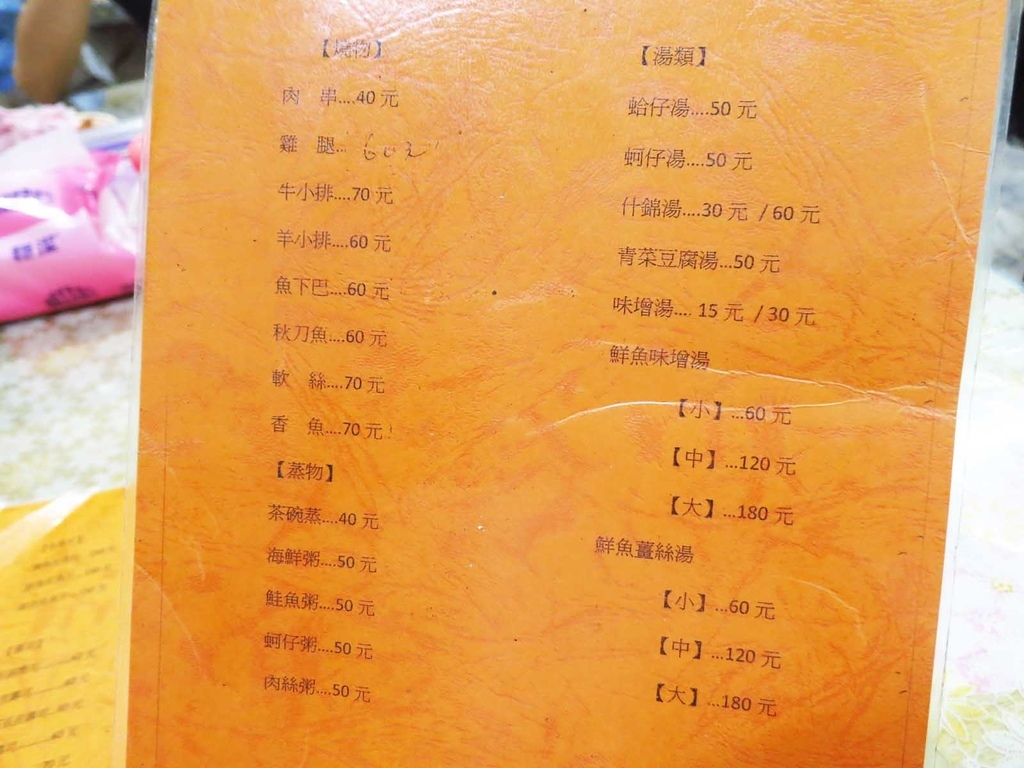 【燒物】
肉 串....40 元
雞 腿... 60元
牛小排....70 元
羊小排....60 元
魚下巴....60 元
秋刀魚....60 元
軟 絲....70 元
香 魚....70 元
【蒸物】
茶碗蒸....40 元
海鮮粥....50 元
鮭魚粥....50 元
蚵仔粥....50 元
肉絲粥....50 元
【湯類】
蛤仔湯....50 元
蚵仔湯....50 元
什錦湯....30 元 / 60 元
青菜豆腐湯...50 元
味增湯.... 15 元 / 30 元
鮮魚味增湯
【小】...60 元
【中】...120 元
【大】...180 元
鮮魚薑絲湯
【小】...60 元
【中】...120 元
【大】...180 元